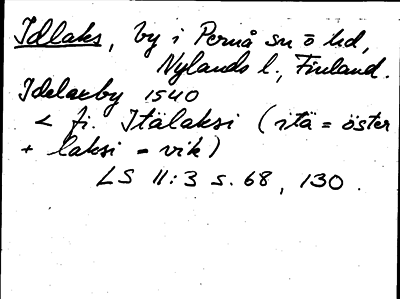 Idlaks, by i Pernå sn o hd,
Nylands l., Finland.
Idelaxby 1540
< fi. Itälaksi (itä = öster
+ laksi = vik)
LS II:3 s. 68, 130.